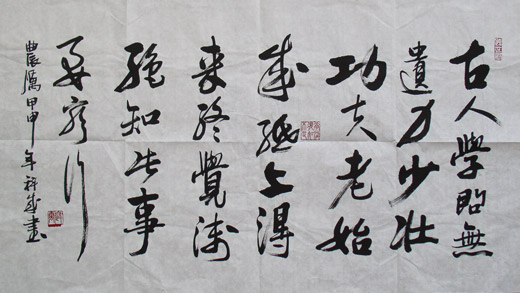 古人學問無
遺力少壮
功夫老始
成紙上得
来終覺淺
絕知此事
要躬行
農厲甲申年書